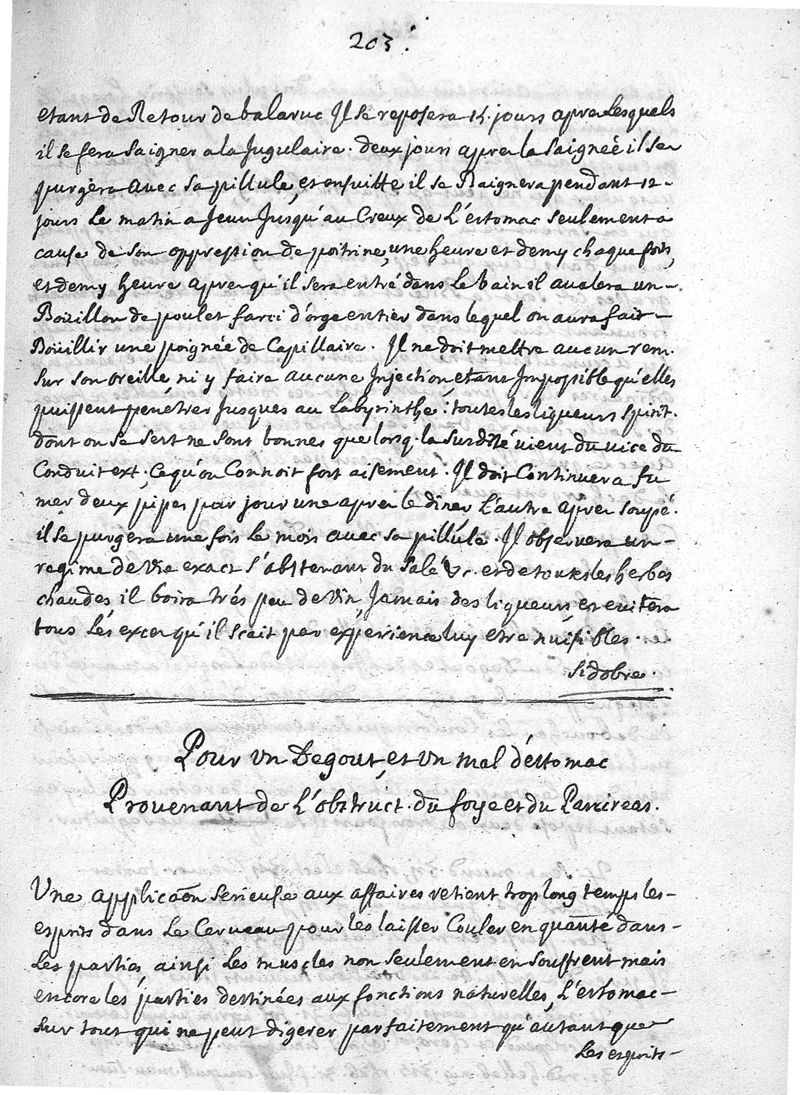 203.
etant de Retour de balaruc Il se reposera 14 jours apres Lesquels
il se fera saigner a la Jugulaire. deux jours apres la saigneé il se
purgera avec sa pillule, et ensuitte il se Baignera pendant 12-
jours Le matin a Jeun Jusqu'au Creux de L'estomac seulement a
cause de son oppression de poitrine, une heure et demy chaque fois,
et demy heure apres qu'il sera entré dans Le bain il avalera un-
Boüillon de poulet farci d'orge entier dans lequel on aura fait-
Boüillir une poignée de Capillaire. Il ne doit mettre aucun rem.
sur son oreille ni y faire aucune Injection, etant Impossible qu'elles
puissent penétrer Jusques au Labyrinthe: toutes les liqueurs spirit.
dont on se sert ne sont bonnes que lorsq. la surdité vient du vice du
Conduit ext. Ce qu'on Connoit fort aisement. Il doit Continuer a fu
mer deux pipes par jour une apres le diner L'autre apres soupé.
il se purgera une fois Le mois avec sa pillule. Il observera un-
regime de Vie exact s'abstenant du salé &c. et de toutes les herbes
chaudes il boira trés peu de vin, Jamais des liqueurs et evitera
tous Les exces qu'il scait par experience luy etre nuisibles.
Sidobre.
Pour un Degout, et un mal d'estomac
Provenant de L'obstruct. du foye et du Pancreas.
Une applicaõn serieuse aux affaires retient trop long temps les-
esprits dans Le Cerveau pour les laisser Couler en quantité dans-
Les parties, ainsi Les muscles non seulement en souffrent mais
encore les parties destinées aux fonctions naturelles, L'estomac-
sur tout qui ne peut digerer parfaitement qu'autant que
Les esprits-